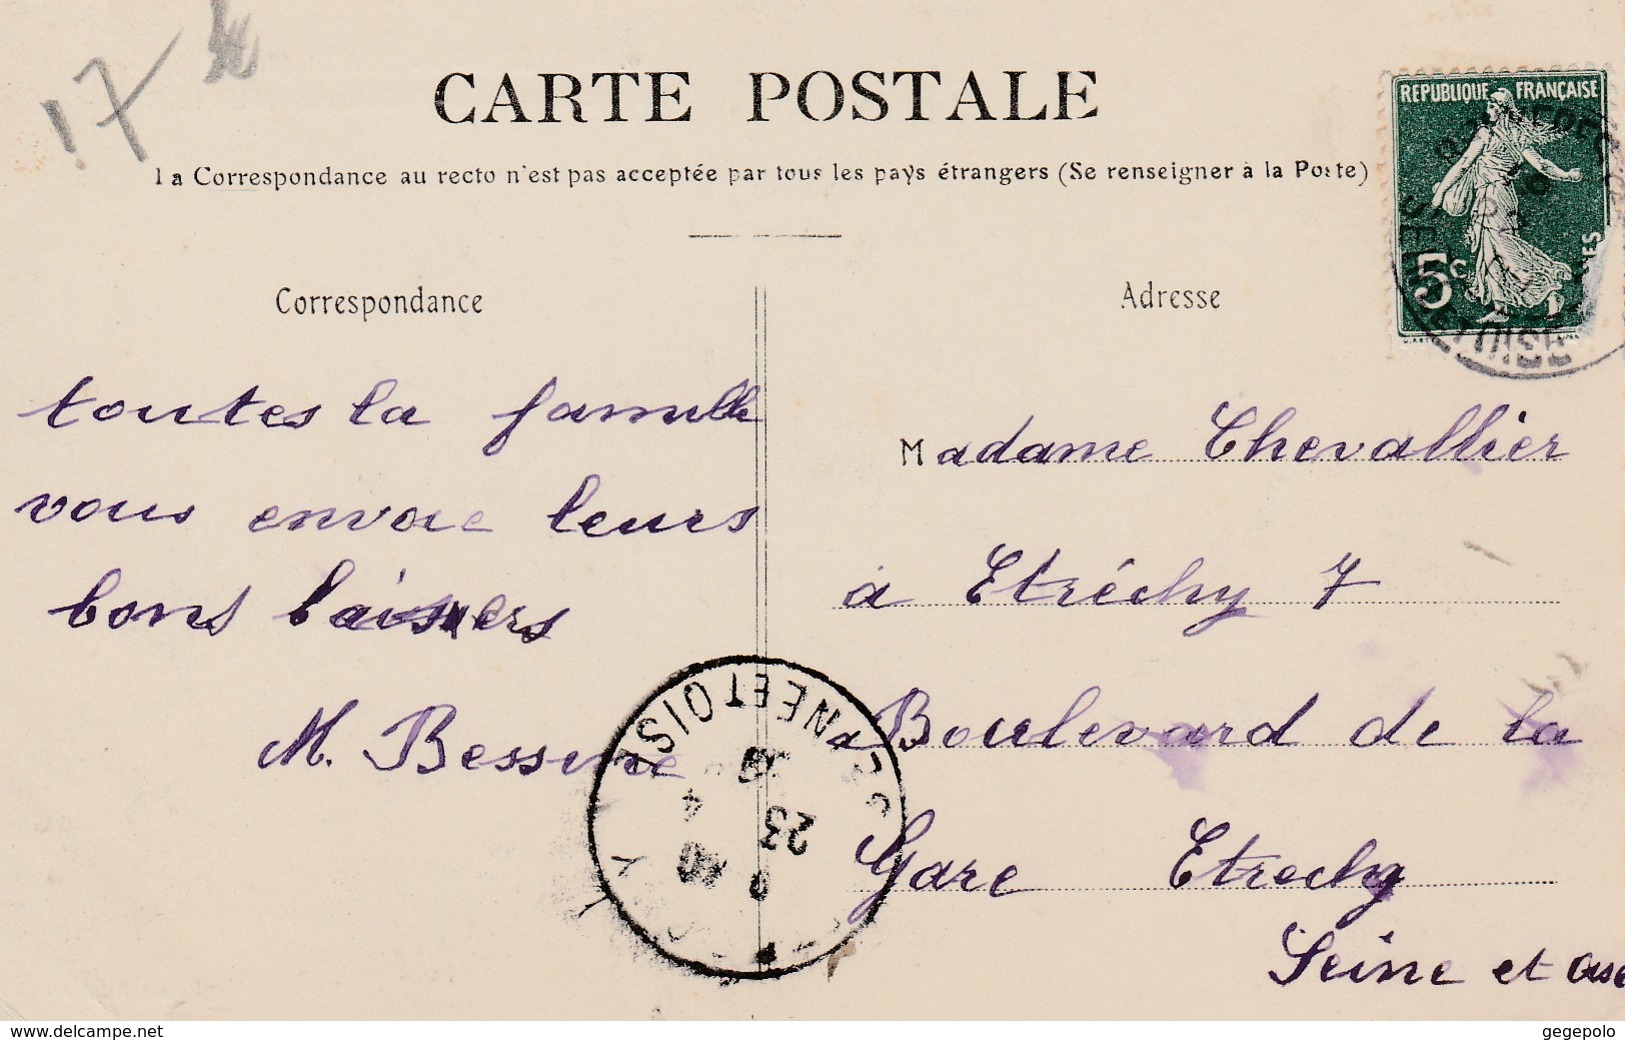 17
CARTE POSTALE
La Correspondance au recto n'est pas acceptée par tous les pays étrangers (Se renseigner à la Poste)
REPUBLIQUE FRANÇAISE
5c
SEINE ET OISE
Correspondance
toutes la famille
vous envoie leurs
bons baisers
M. Bessine
SEINE ET OISE
23
4
Adresse
Madame Chevallier
à Etréchy 7
Boulevard de la
Gare Etrechy
Seine et Oise
www.delcampe.net
gegepolo